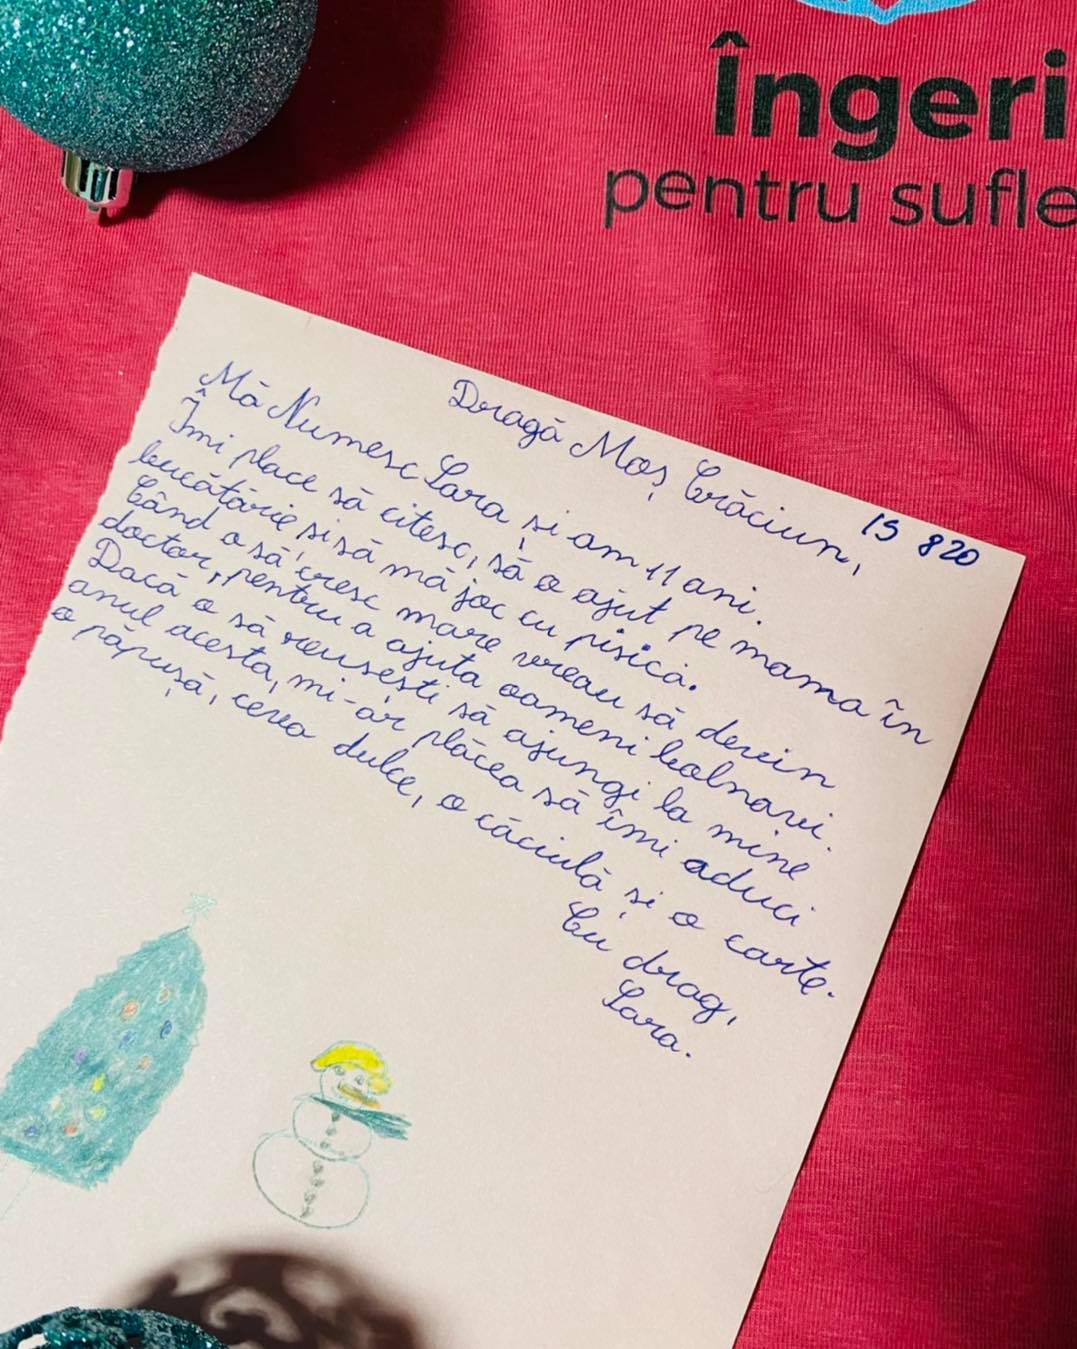 Îngeri
pentru sufle
Dragă Moș Crăciun,
15 820
Mă Numesc Lara și am 11 ani.
Îmi place să citesc, să o ajut pe mama în
bucătărie și să mă joc cu pisica.
Când o să cresc mare vreau să devin
doctor, pentru a ajuta oameni bolnavi.
Dacă o să reusești să ajungi la mine
anul acesta, mi-ar plăcea să îmi aduci
o păpușă, ceva dulce, o căciulă și o carte.
Cu drag,
Lara.